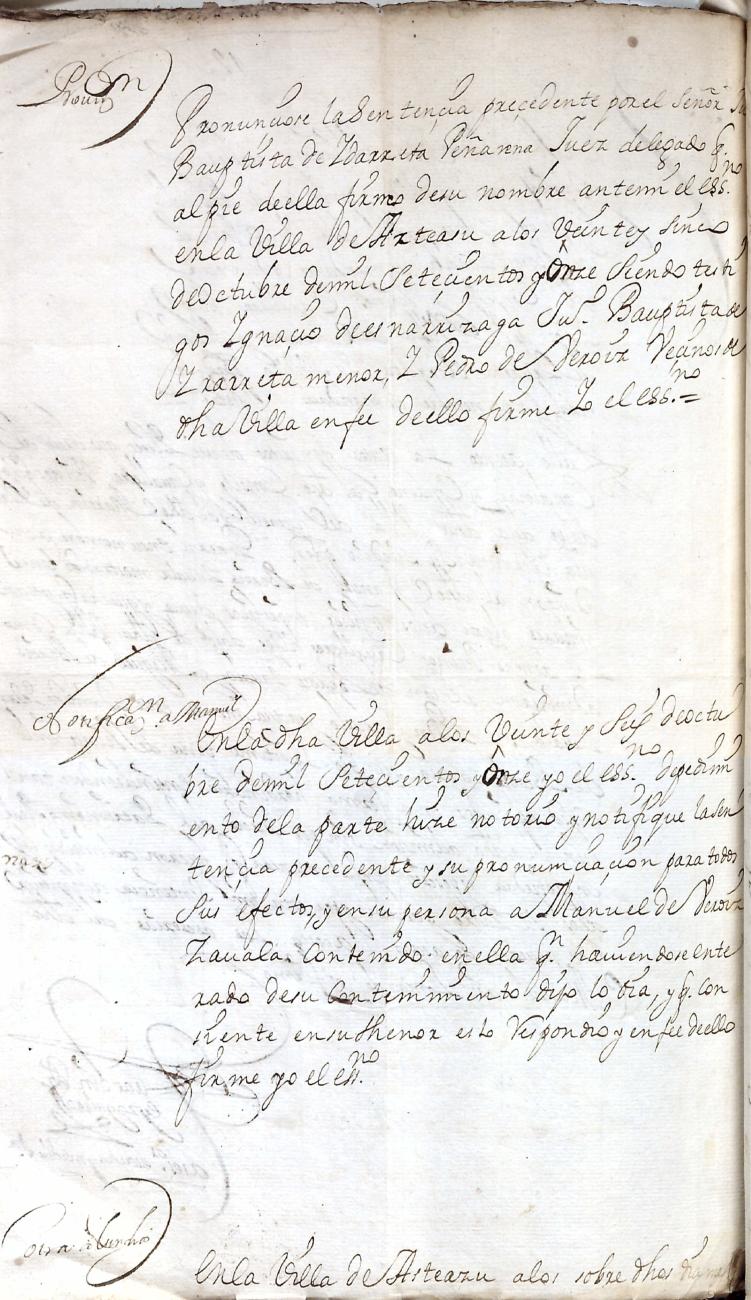 Pronun.on
Pronunçiose la Sentençia preçedente por el Señor Ju
Bauptista de Ydarreta Peñarena Juez delegado q.
al pie de ella firmo de su nombre antemi el ess.no
en la Villa de Azteasu a los Veinte y sinco
de Octubre de mil Seteçientos y Onze siendo testi
gos Ygnaçio de esnarrizaga Ju.o Bauptista de
Yrarreta menor, Y Pedro de Veroiz Vecinos de
dha Villa en fee de ello firme Yo el ess.no =
Notificaz.on a Manuel
En la dha Villa a los Veinte y Seis de octu
bre de mil Seteçientos y Onze yo el ess.no de pedimi
ento de la parte hize notorio y notifique la Sen
tençia precedente y su pronunçiaçion para todos
sus efectos, y en su persona a Manuel de Veroiz
Zavala Contenido en ella q.n haviendose ente
rado de su Contenimiento dijo lo oia, y q. Con
siente en su thenor esto Respondio y en fee de ello
firme yo el ess.no
otra a
En la Villa de Asteazu a los sobre dhos dia mes